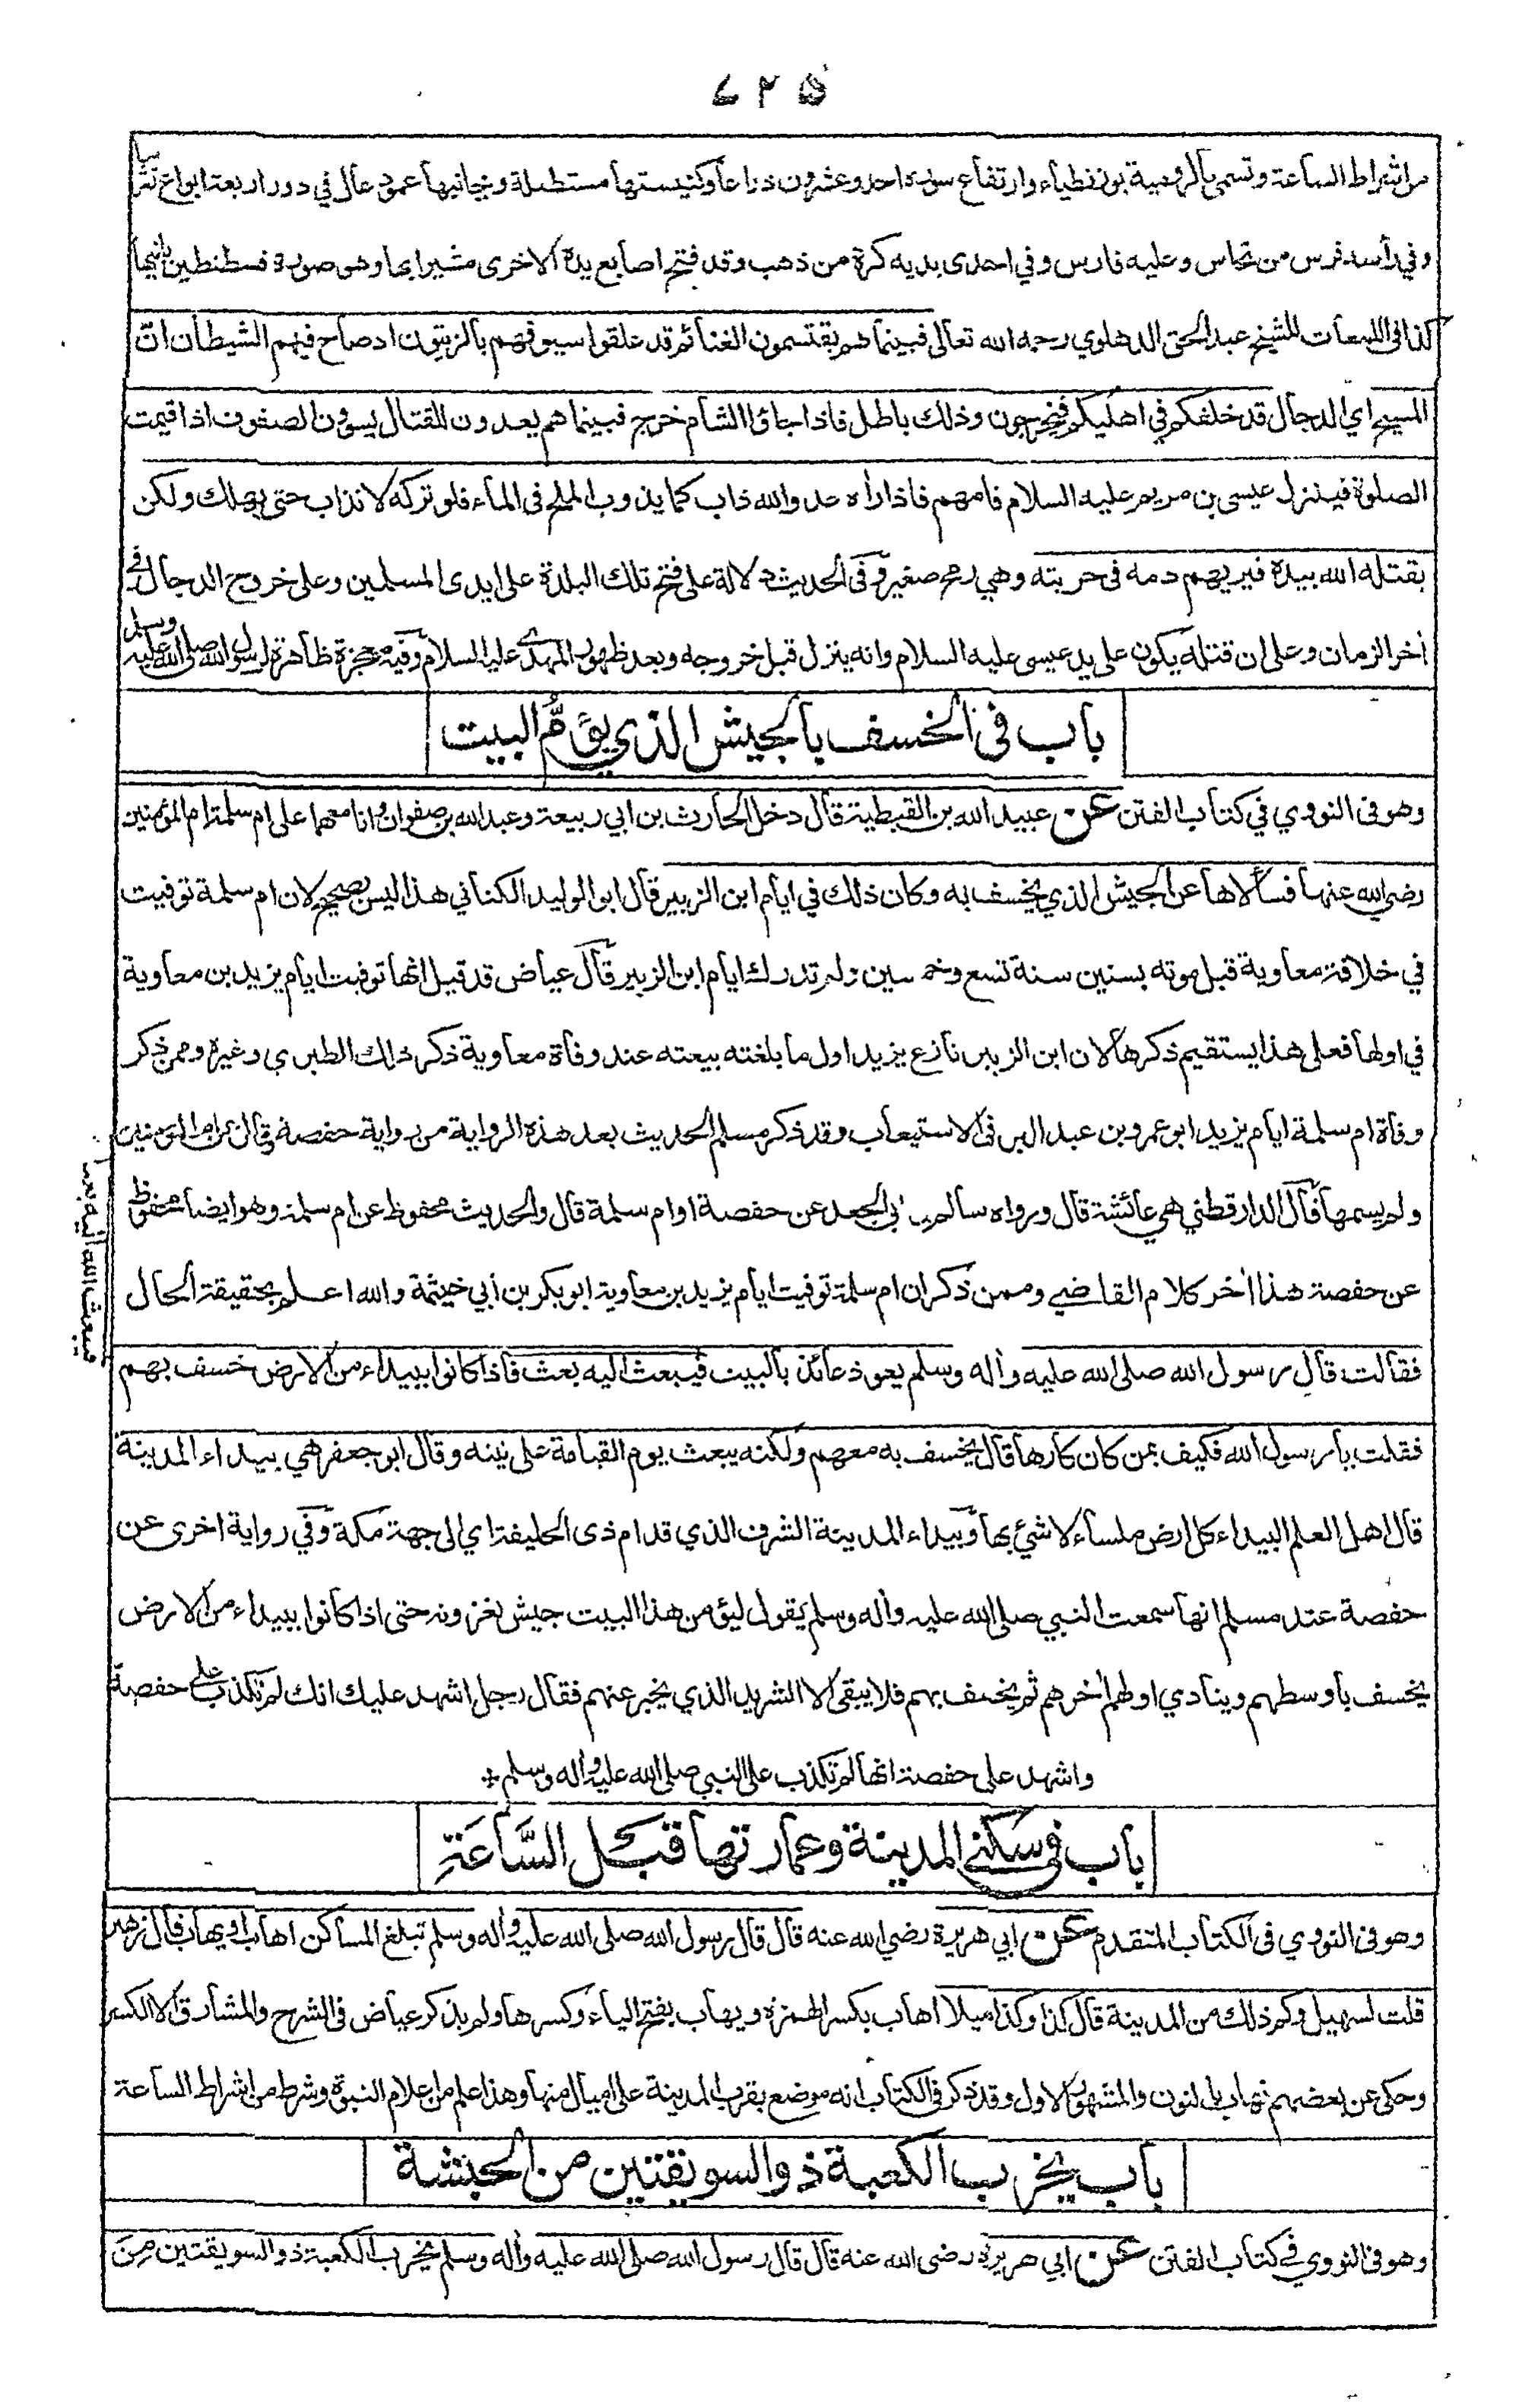 ٧٢٥
من اشراط الساعة وتسمى بالرومية بوزنطياء وارتفاع سوره احد وعشرون ذراعا وكنيستها مستطيلة وبجانبها عمود عال في دور اربعة ابواع تقريبا
وفي رأسه فرس من نحاس وعليه فارس وفي احدى يديه كرة من ذهب وقد فتح اصابع يده الاخرى مشيرا بها وهو صورة قسطنطين بانيها
كذا في اللمعات للشيخ عبد الحق الدهلوي رحمه الله تعالى فبينما هم يقتسمون الغنائم قد علقوا سيوفهم بالزيتون اذ صاح فيهم الشيطان ان
المسيح اي الدجال قد خلفكم في اهليكم فيخرجون وذلك باطل فاذا جاؤا الشام خرج فبينما هم يعدون للقتال يسوون الصفوف اذا قيمت
الصلوة فينزل عيسى بن مريم عليه السلام فامهم فاذا رأه عدو الله ذاب كما يذوب الملح في الماء فلو تركه لانذاب حتى يهلك ولكن
يقتله الله بيده فيريهم دمه في حربته وهي رمح صغير وفي الحديث دلالة على فتح تلك البلدة على ايدى المسلمين وعلى خروج الدجال في
أخر الزمان وعلى ان قتله يكون على يد عيسى عليه السلام وانه ينزل قبل خروجه وبعد ظهور المهدي عليه السلام وفيه معجزة ظاهرة لرسول الله صلى الله عليه وسلم
باب في الخسف بالجيش الذي يؤمّ البيت
وهو في النووي في كتاب الفتن عن عبيد الله بن القبطية قال دخل الحارث بن ابي ربيعة وعبد الله بن صفوان وانا معهما على ام سلمة ام المؤمنين
رضي الله عنها فسألاها عن الجيش الذي يخسف به وكان ذلك في ايام ابن الزبير قال ابو الوليد الكناني هذا ليس بصحيح لان ام سلمة توفيت
في خلافة معاوية قبل موته بسنين سنة تسع وخمسين ولم تدرك ايام ابن الزبير قال عياض قد قيل انها توفيت ايام يزيد بن معاوية
في اولها فعلى هذا يستقيم ذكرها لان ابن الزبير نازع يزيد اول ما بلغته بيعته عند وفاة معاوية ذكر ذلك الطبري وغيره وممن ذكر
وفاة ام سلمة ايام يزيد ابو عمرو بن عبد البر في الاستيعاب وقد ذكر مسلم الحديث بعد هذه الرواية من رواية حفصة وقال عن ام المؤمنين
ولم يسمها قال الدارقطني هي عائشة قال ورواه سالم بن ابي الجعد عن حفصة او ام سلمة قال والحديث محفوظ عن ام سلمة وهو ايضا محفوظ
عن حفصة هذا أخر كلام القاضي وممن ذكر ان ام سلمة توفيت ايام يزيد بن معاوية ابو بكر بن أبي خيثمة والله اعلم بحقيقة الحال
فقالت قال رسول الله صلى الله عليه وأله وسلم يعوذ عائذ بالبيت فيبعث اليه بعث فاذا كانوا ببيداء من الارض خسف بهم
فيبعث الله اليه بعثا
فقلت يا رسول الله فكيف بمن كان كارها قال يخسف به معهم ولكنه يبعث يوم القيامة على نيته وقال ابو جعفر هي بيداء المدينة
قال اهل العلم البيداء كل ارض ملساء لا شئ بها وبيداء المدينة الشرف الذي قدام ذى الحليفة اي الى جهة مكة وفي رواية اخرى عن
حفصة عند مسلم انها سمعت النبي صلى الله عليه وأله وسلم يقول ليؤمن هذا البيت جيش يغزونه حتى اذا كانوا ببيداء من الارض
يخسف باوسطهم وينادي اولهم أخرهم ثم يخسف بهم فلا يبقى الا الشريد الذي يخبر عنهم فقال رجل اشهد عليك انك لم تكذب على حفصة
واشهد على حفصة انها لم تكذب على النبي صلى الله عليه وأله وسلم
باب في سكنى المدينة وعمارتها قبل السَّاعَةِ
وهو في النووي في الكتاب المتقدم عن ابي هريرة رضي الله عنه قال قال رسول الله صلى الله عليه وأله وسلم تبلغ المساكن اهاب او يهاب قال زهير
قلت لسهيل وكم ذلك من المدينة قال كذا وكذا ميلا اهاب بكسر الهمزة ويهاب بفتح الياء وكسرها ولم يذكر عياض في الشرح والمشارق الا الكسر
وحكى عن بعضهم نهاب بالنون والمشهور الاول وقد ذكر في الكتاب انه موضع بقرب المدينة على اميال منها وهذا علم من اعلام النبوة وشرط من اشراط الساعة
باب يخرب الكعبة ذو السويقتين من الحبشة
وهو في النووي في كتاب الفتن عن ابي هريرة رضى الله عنه قال قال رسول الله صلى الله عليه وأله وسلم يخرب الكعبة ذو السويقتين مِنَ